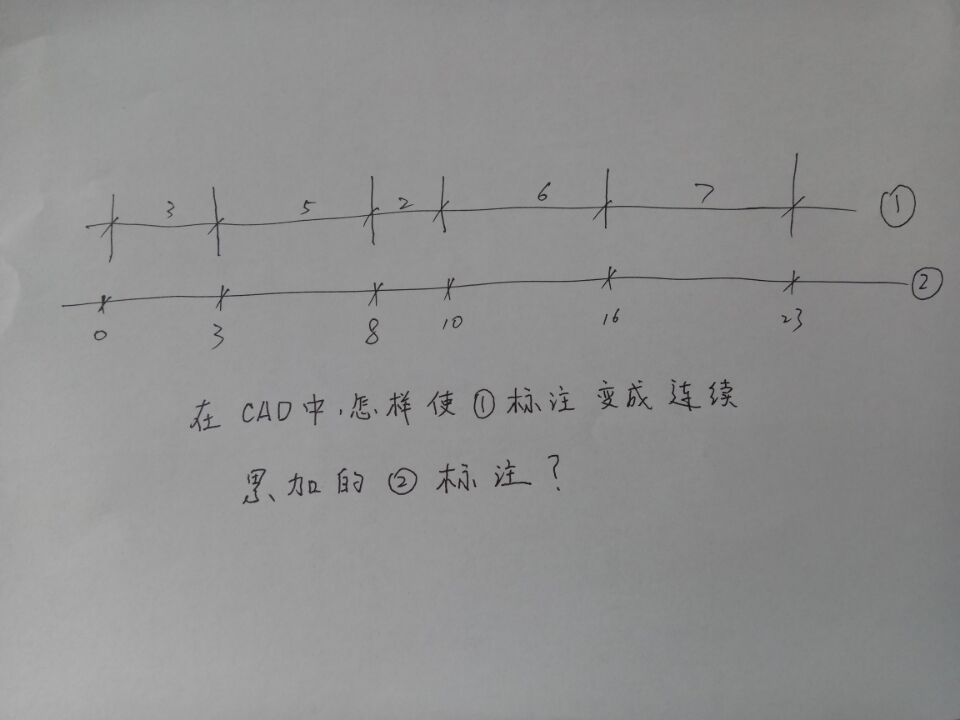 3 5 2 6 7 ①
②
0 3 8 10 16 23
在CAD中,怎样使①标注变成连续
累加的②标注?